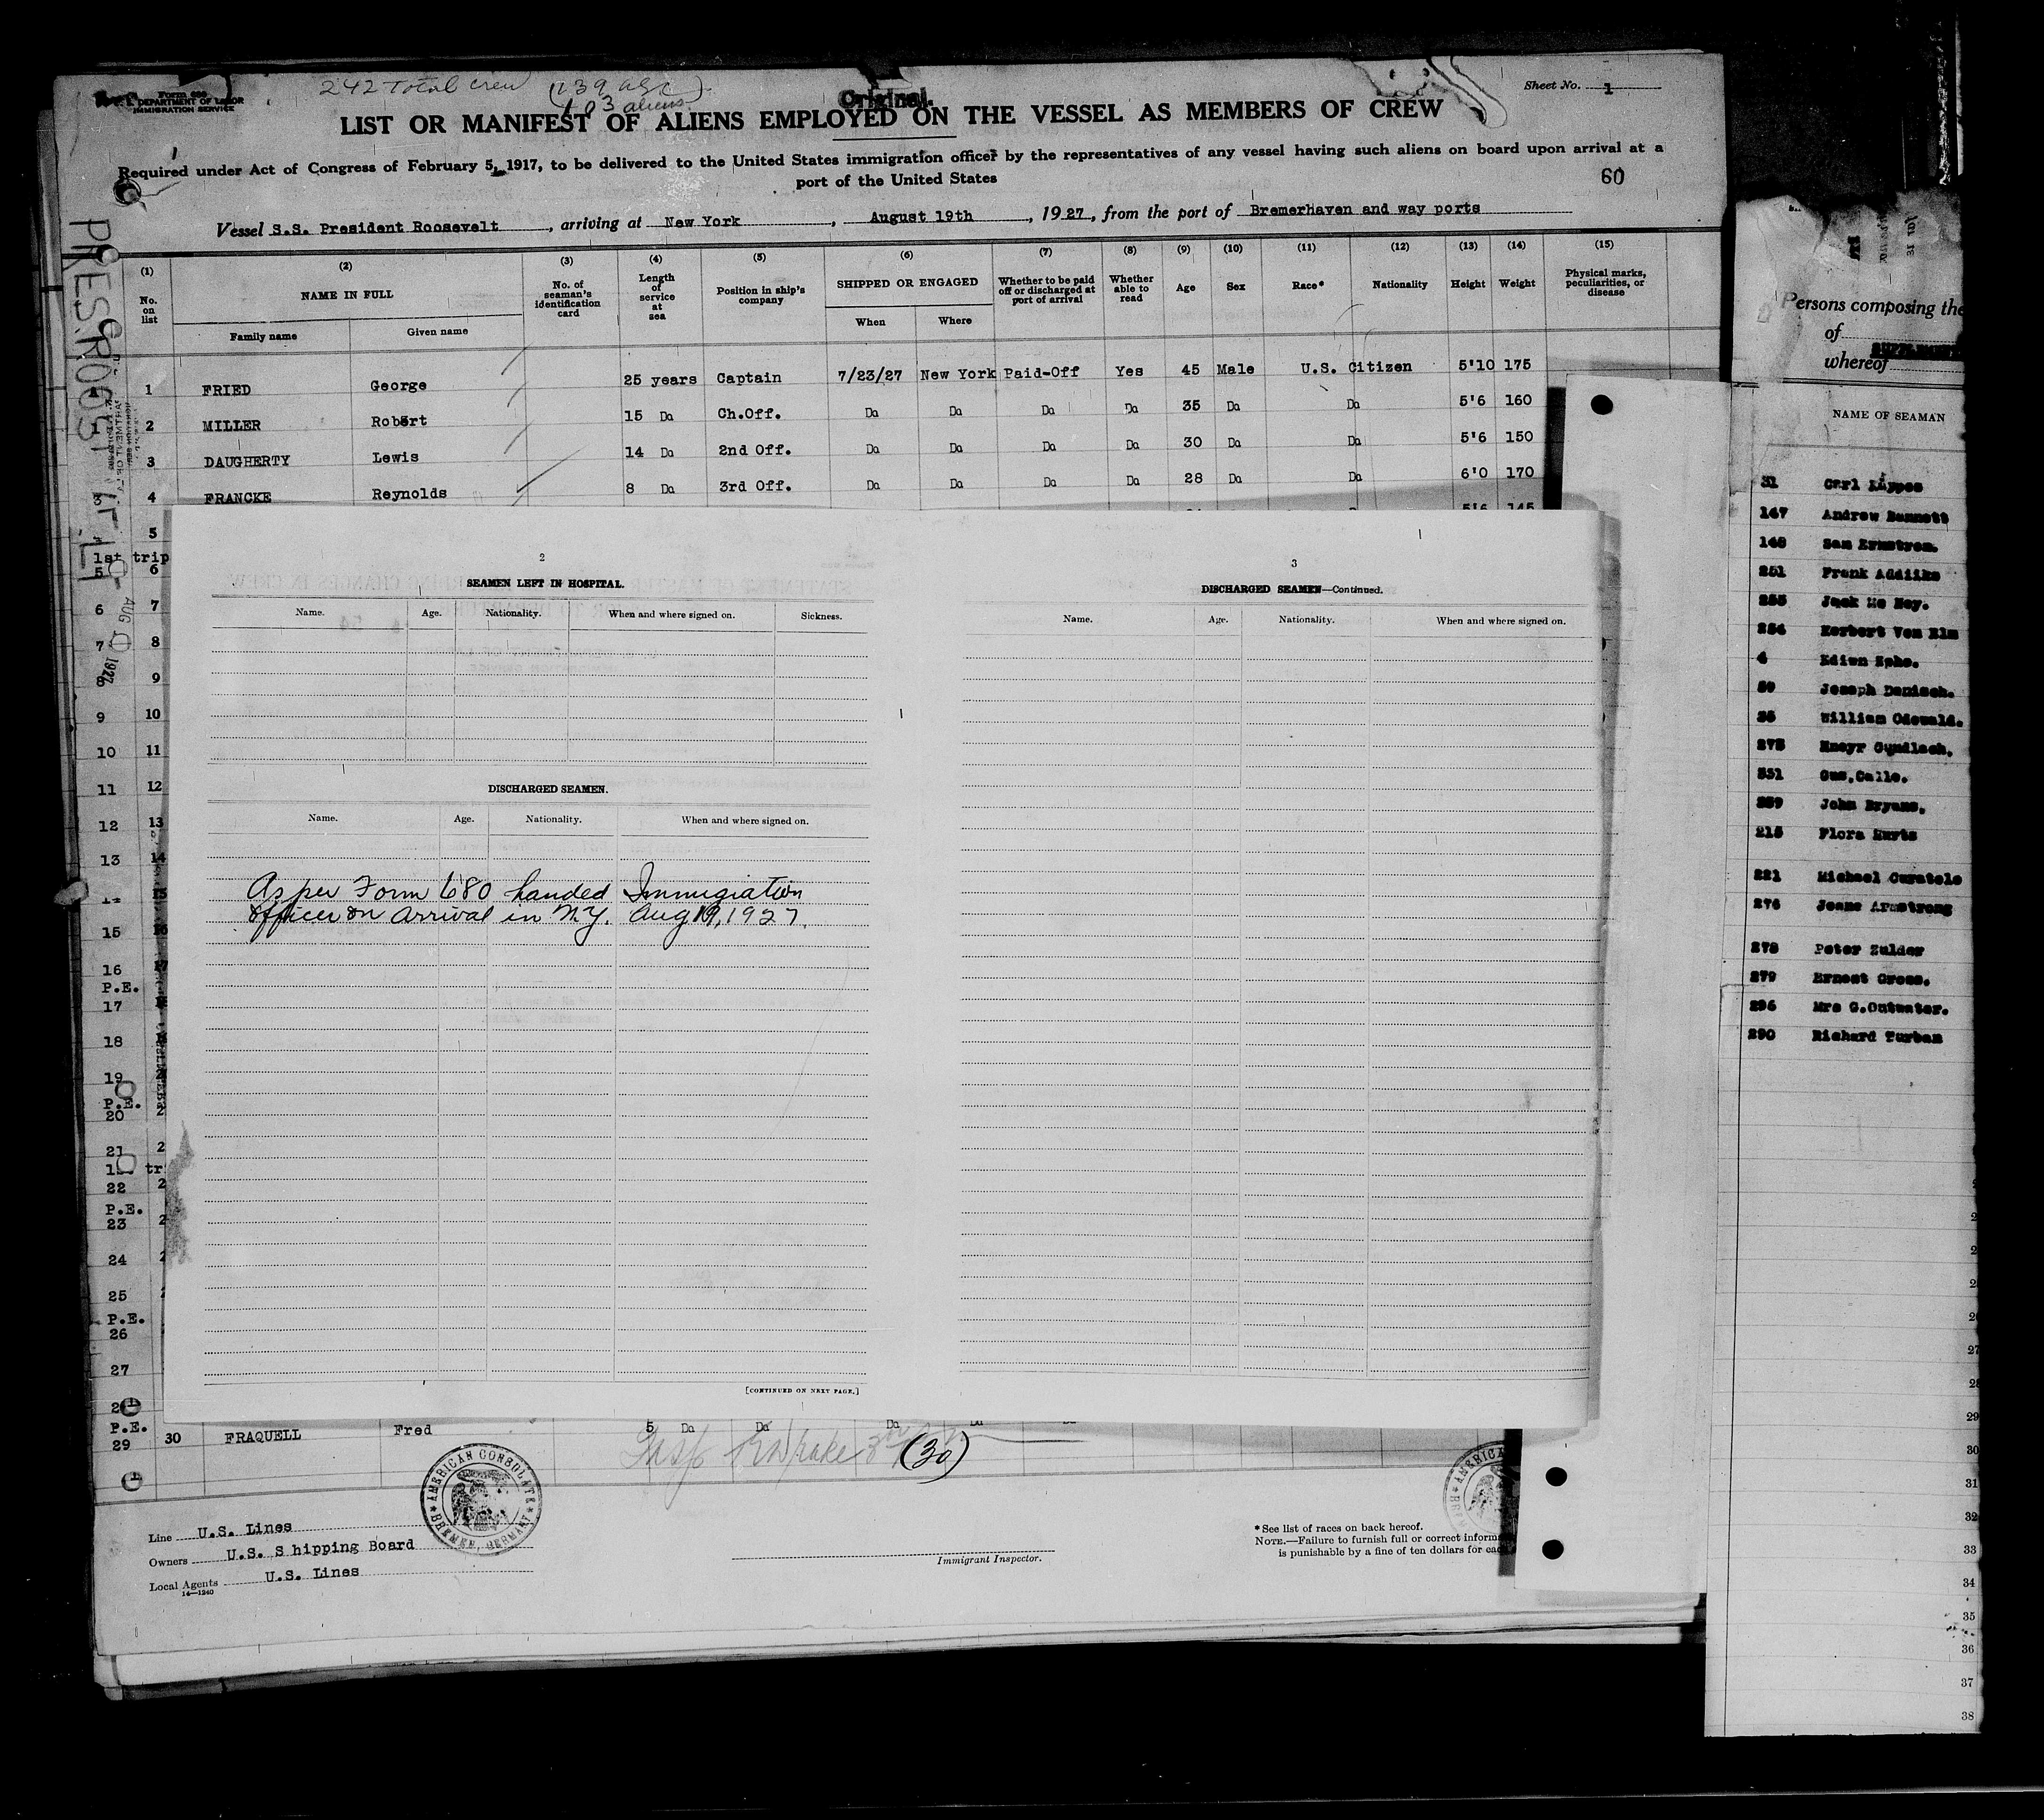 242 Total crew (139 asc
103 aliens)
Original
Sheet No. 1
Form 680
U.S. DEPARTMENT OF LABOR
IMMIGRATION SERVICE
LIST OR MANIFEST OF ALIENS EMPLOYED ON THE VESSEL AS MEMBERS OF CREW
Required under Act of Congress of February 5, 1917, to be delivered to the United States immigration officer by the representatives of any vessel having such aliens on board upon arrival at a
port of the United States
60
Vessel S.S. President Roosevelt, arriving at New York, August 19th, 1927, from the port of Bremerhaven and way ports
(1) (2) (3) (4) (5) (6) (7) (8) (9) (10) (11) (12) (13) (14) (15)
No. on list
NAME IN FULL
Family name
Given name
No. of seaman's identification card
Length of service at sea
Position in ship's company
SHIPPED OR ENGAGED
When
Where
Whether to be paid off or discharged at port of arrival
Whether able to read
Age
Sex
Race*
Nationality
Height
Weight
Physical marks, peculiarities, or disease
1 FRIED George 25 years Captain 7/23/27 New York Paid-Off Yes 45 Male U.S. Citizen 5'10 175
2 MILLER Robert 15 Do Ch.Off. Do Do Do Do 35 Do Do 5'6 160
3 DAUGHERTY Lewis 14 Do 2nd Off. Do Do Do Do 30 Do Do 5'6 150
4 FRANCKE Reynolds 8 Do 3rd Off. Do Do Do Do 28 Do Do 6'0 170
5 5'6 145
PRES. ROOSEVELT
AUG 1927
1st trip
5 6
6 7
7 8
8 9
9 10
10 11
11 12
12 13
13 14
15
15 16
16 17
P.E.
17
18
19
P.E.
20
21
22
P.E.
23
24
25
P.E.
26
27
P.E.
29
2
SEAMEN LEFT IN HOSPITAL.
Name. Age. Nationality. When and where signed on. Sickness.
DISCHARGED SEAMEN.
Name. Age. Nationality. When and where signed on.
As per Form 680 handed Immigration
officer on arrival in N.Y. Aug 19, 1927.
[CONTINUED ON NEXT PAGE.]
3
DISCHARGED SEAMEN—Continued.
Name. Age. Nationality. When and where signed on.
30 FRAQUELL Fred 5 Do Do Do Do Do
(30)
AMERICAN CONSULATE
BREMEN, GERMANY
Line U.S. Lines
Owners U.S. Shipping Board
Local Agents U.S. Lines
14—1240
Immigrant Inspector.
*See list of races on back hereof.
NOTE.—Failure to furnish full or correct inform
is punishable by a fine of ten dollars for eac
AMERICA
Persons composing the
of
whereof
NAME OF SEAMAN
31 Carl
147 Andrew Bennett
148 Sam
251 Frank
255 Jack Mc
254 Herbert Von Elm
4
59 Joseph Danisch.
35 William Odewald.
275 Gundlach,
331 Gus,Calle.
259 John Bryans,
215 Flora
221 Michael Curatele
276 Jeane Armstrong
278 Peter Zulder
279 Ernest Gross.
296 Mrs G.Outwater.
290 Richard Turban
27
28
29
30
31
32
33
34
35
36
37
38